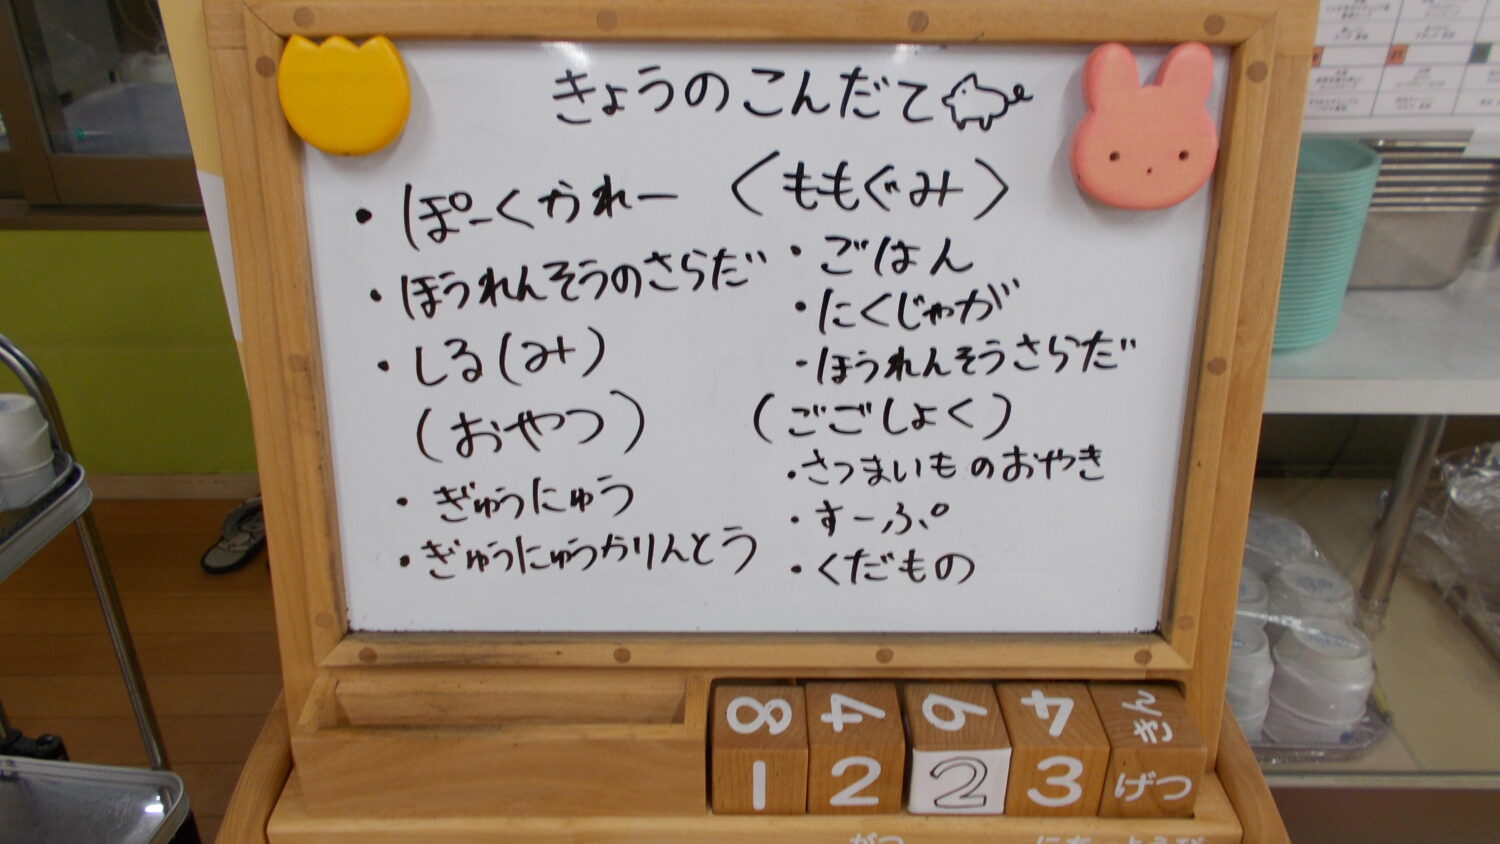 きょうのこんだて
・ぽーくかれー
・ほうれんそうのさらだ
・しる(みそ)
(おやつ)
・ぎゅうにゅう
・ぎゅうにゅうかりんとう
〈ももぐみ〉
・ごはん
・にくじゃが
・ほうれんそうさらだ
(ごごしょく)
・さつまいものおやき
・すーぷ
・くだもの
8 4 6 4 きん
1 2 2 3 げつ
がつ にち ようび